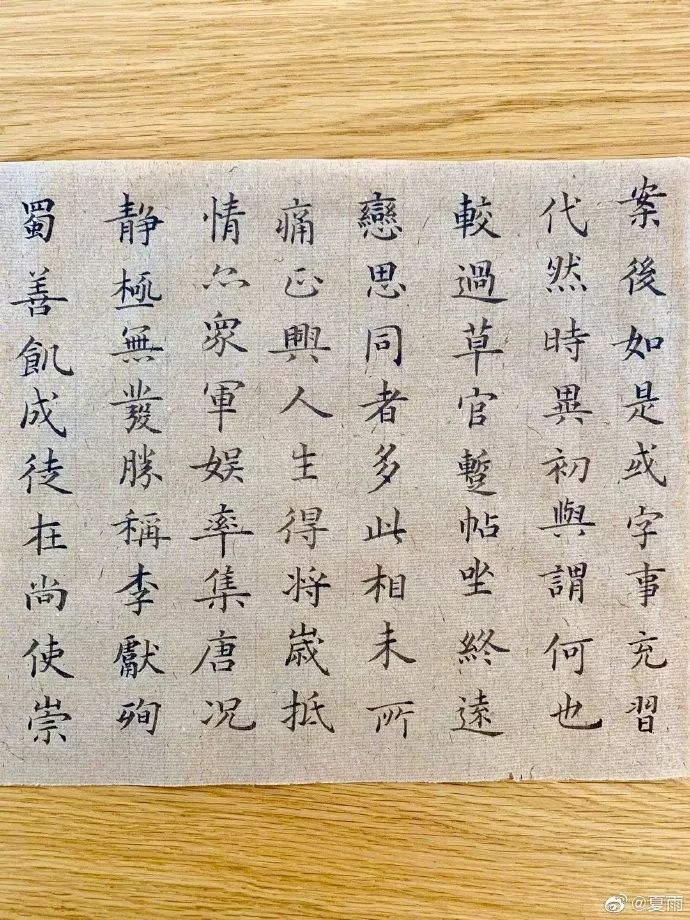 案後如是或字事充習
代然時異初與謂何也
較過草官蹔帖坐終遠
戀思同者多此相未所
痛正興人生得将歳抵
情亦眾軍娱率集唐况
静極無發勝稱李獻殉
蜀善飢成徒在尚使崇
@夏雨